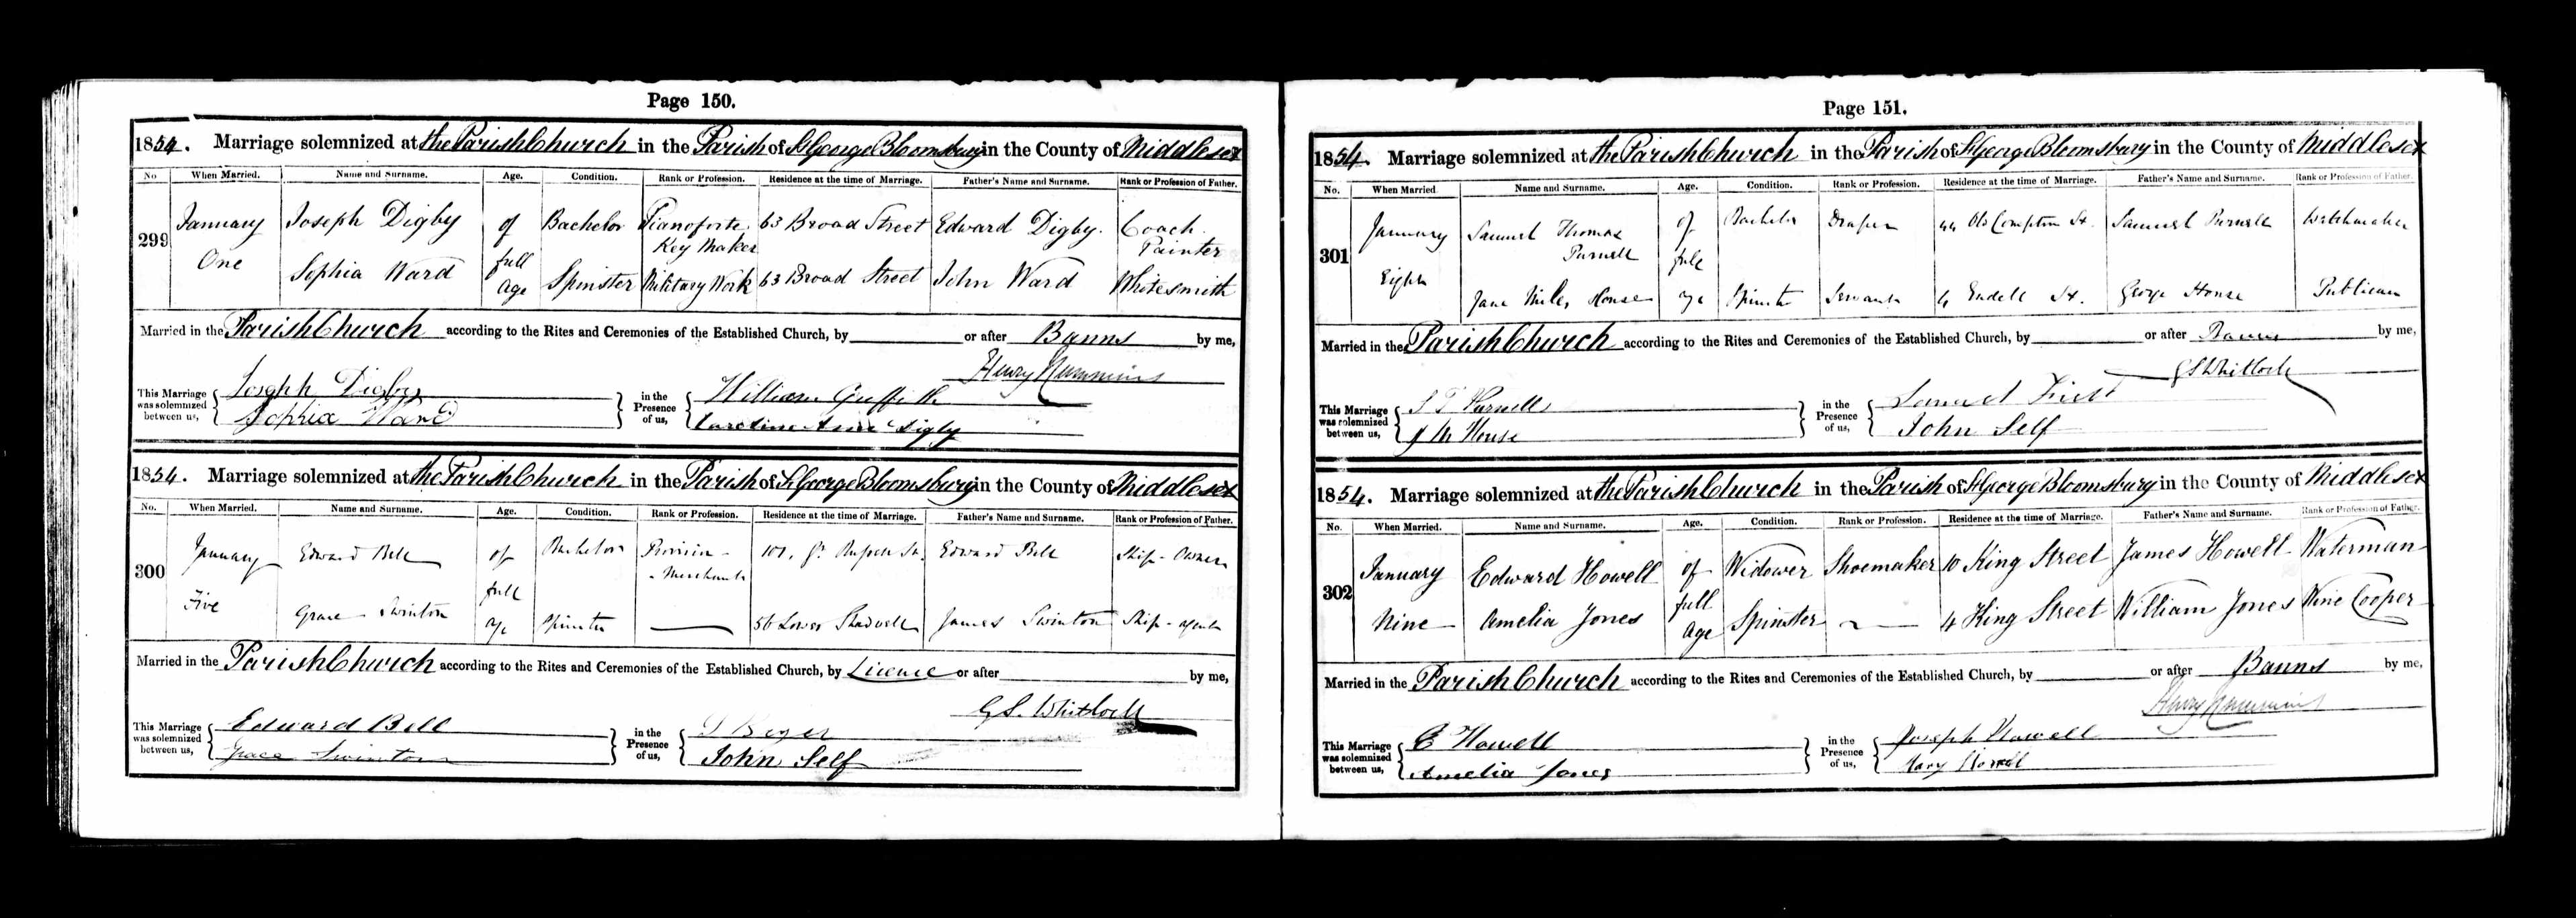 Page 150.
1854. Marriage solemnized at the Parish Church in the Parish of St George Bloomsbury in the County of Middlesex
No When Married. Name and Surname. Age. Condition. Rank or Profession. Residence at the time of Marriage. Father's Name and Surname. Rank or Profession of Father.
299 January One
Joseph Digby of full age Bachelor Pianoforte Key Maker 63 Broad Street Edward Digby. Coach Painter
Sophia Ward Spinster Military Work 63 Broad Street John Ward Whitesmith
Married in the Parish Church according to the Rites and Ceremonies of the Established Church, by or after Banns by me,
Henry
This Marriage was solemnized between us, Joseph Digby Sophia Ward in the Presence of us, William Griffith Caroline Anne Digby
1854. Marriage solemnized at the Parish Church in the Parish of St George Bloomsbury in the County of Middlesex
No. When Married. Name and Surname. Age. Condition. Rank or Profession. Residence at the time of Marriage. Father's Name and Surname. Rank or Profession of Father.
300 January Five
Edward Bell of full age Bachelor Provision Merchant 101, Gt Russell St. Edward Bell Ship-Owner
Grace Swinton Spinster 56 Lower Shadwell James Swinton Ship-agent
Married in the Parish Church according to the Rites and Ceremonies of the Established Church, by Licence or after by me,
G S. Whitlock
This Marriage was solemnized between us, Edward Bell Grace Swinton in the Presence of us, John Self
Page 151.
1854. Marriage solemnized at the Parish Church in the Parish of St George Bloomsbury in the County of Middlesex
No. When Married. Name and Surname. Age. Condition. Rank or Profession. Residence at the time of Marriage. Father's Name and Surname. Rank or Profession of Father.
301 January Eighth
Samuel Thomas Purnell of full age Bachelor Draper 44 Old Compton St. Samuel Purnell Watchmaker
Jane House Spinster Servant 4 Endell St. George House Publican
Married in the Parish Church according to the Rites and Ceremonies of the Established Church, by or after Banns by me,
G S Whitlock
This Marriage was solemnized between us, S T Purnell J M House in the Presence of us, Samuel John Self
1854. Marriage solemnized at the Parish Church in the Parish of St George Bloomsbury in the County of Middlesex
No. When Married. Name and Surname. Age. Condition. Rank or Profession. Residence at the time of Marriage. Father's Name and Surname. Rank or Profession of Father.
302 January Nine
Edward Howell of full age Widower Shoemaker 10 King Street James Howell Waterman
Amelia Jones Spinster 4 King Street William Jones Wine Cooper
Married in the Parish Church according to the Rites and Ceremonies of the Established Church, by or after Banns by me,
Henry
This Marriage was solemnized between us, E Howell Amelia Jones in the Presence of us, Joseph Howell Mary Howell